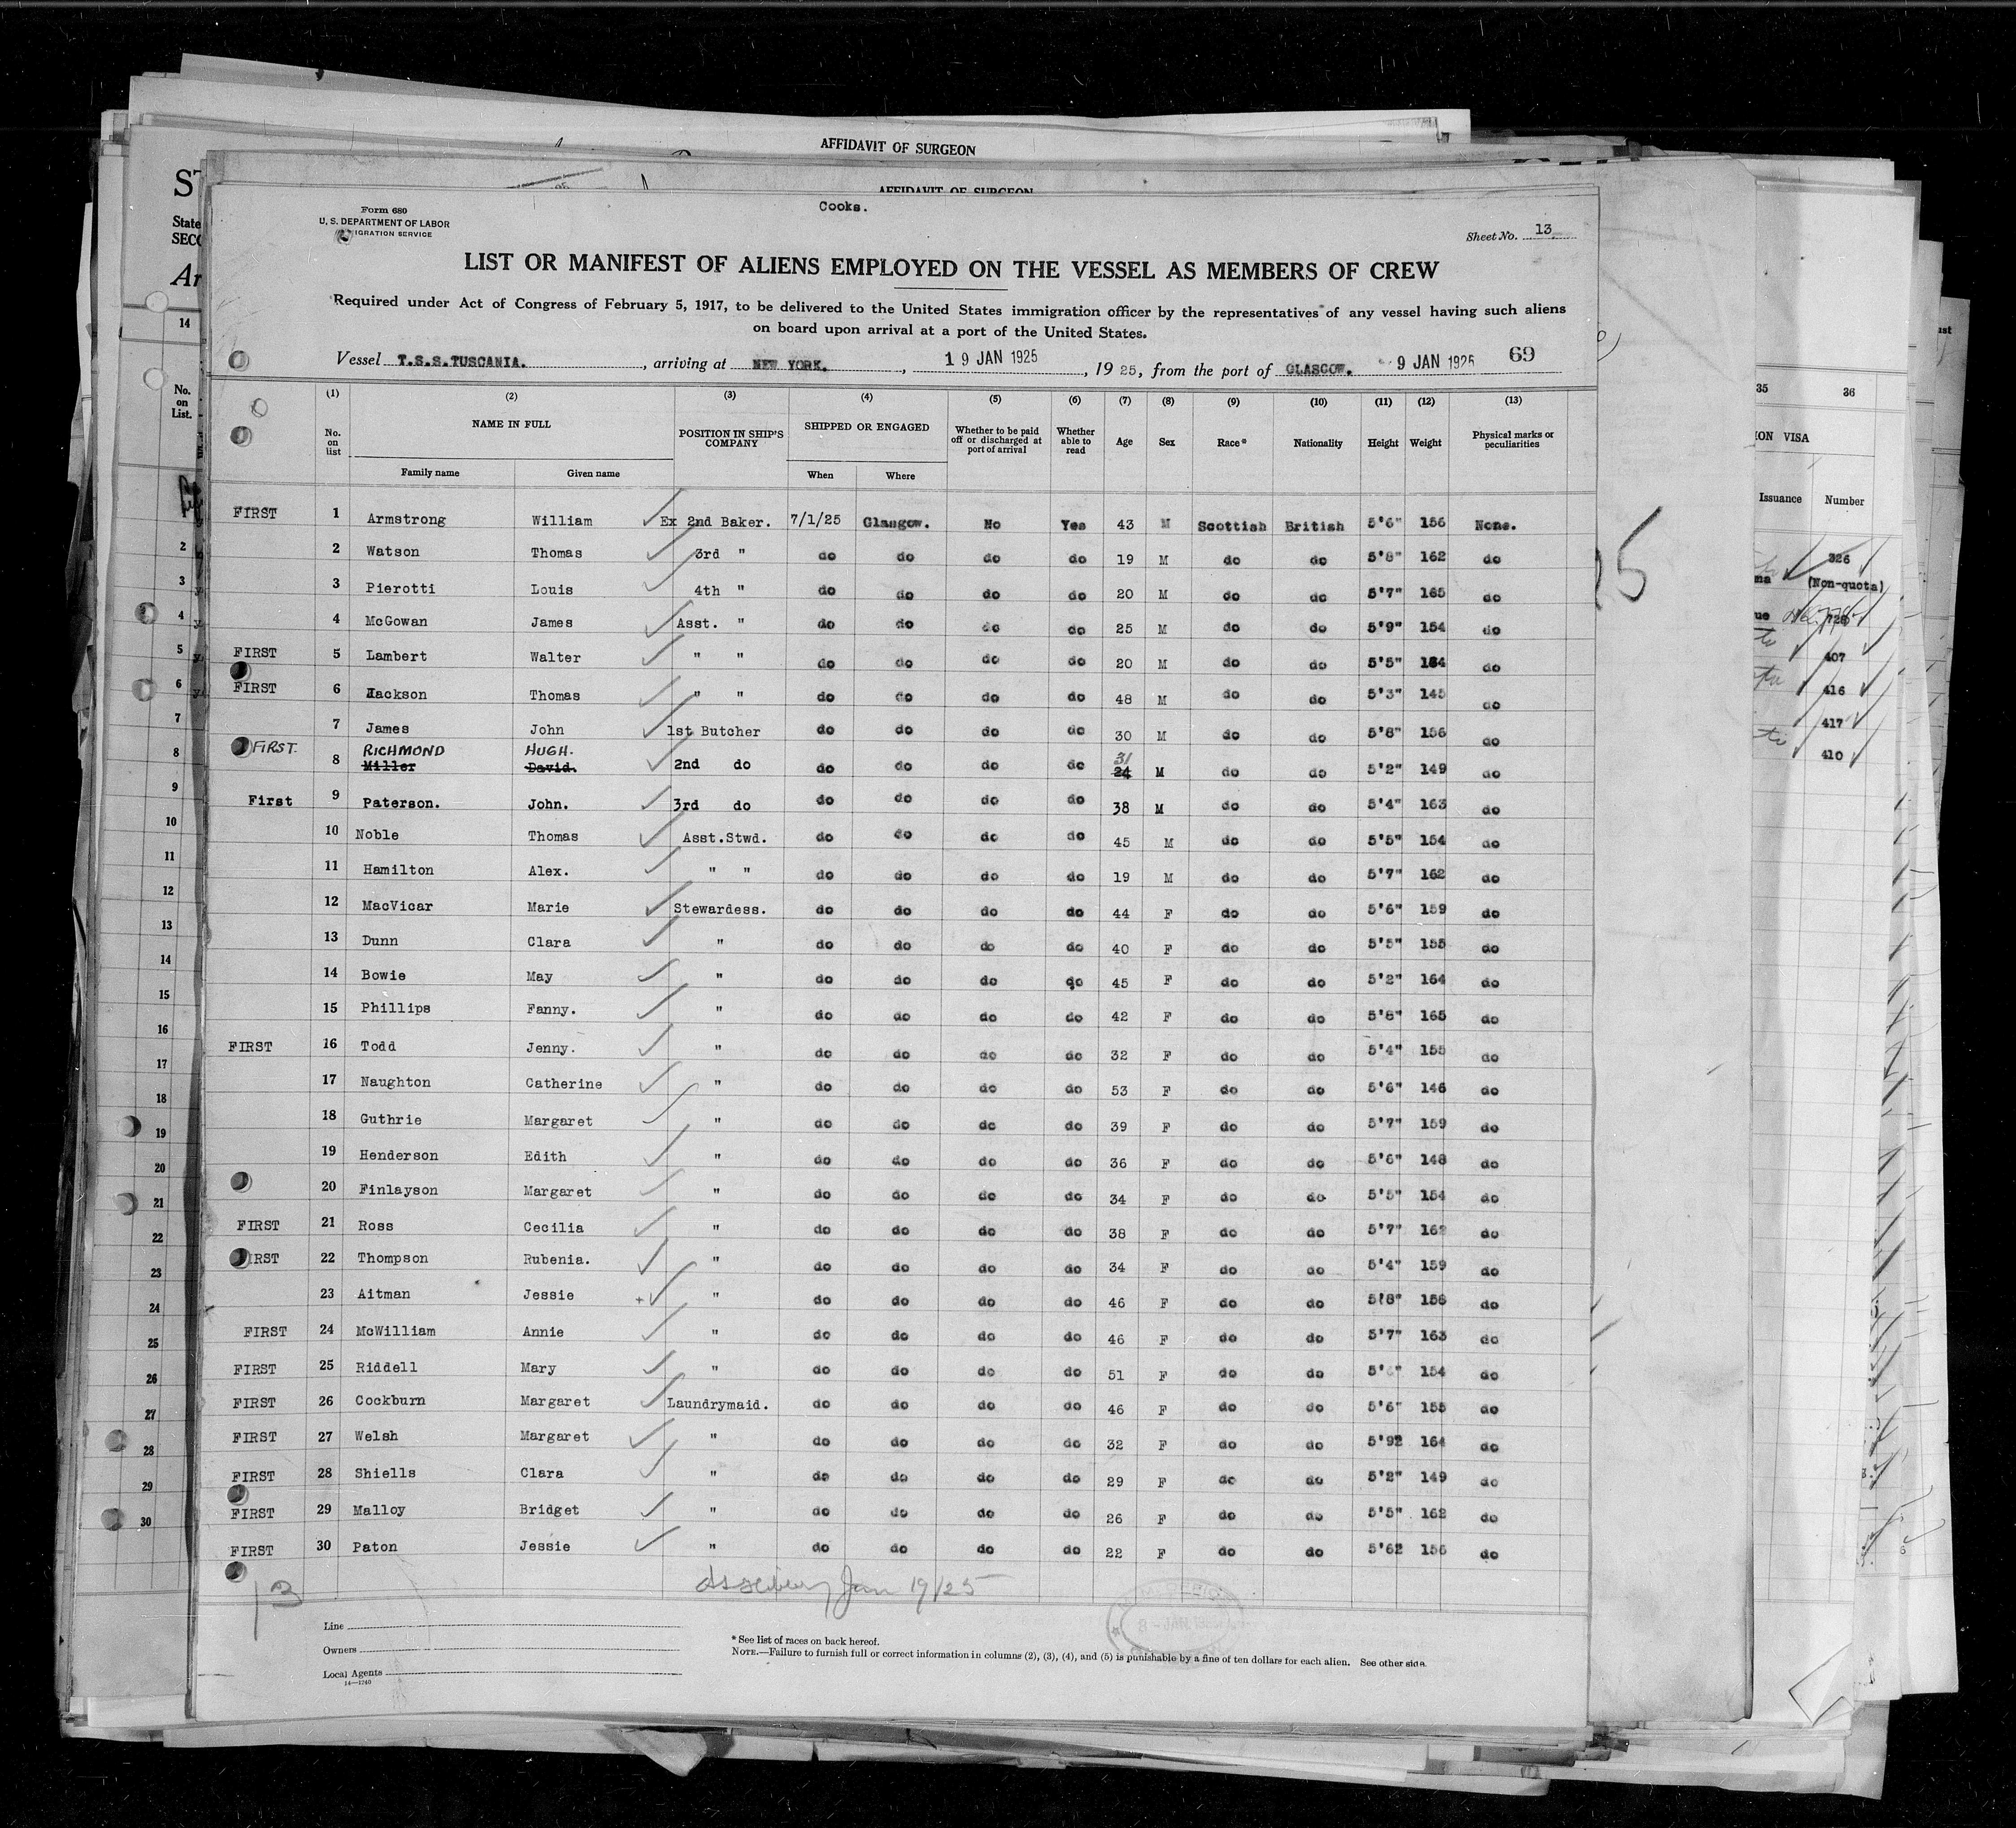 AFFIDAVIT OF SURGEON
AFFIDAVIT OF SURGEON
Cooks.
Form 680
U. S. DEPARTMENT OF LABOR
IGRATION SERVICE
Sheet No. 13
LIST OR MANIFEST OF ALIENS EMPLOYED ON THE VESSEL AS MEMBERS OF CREW
Required under Act of Congress of February 5, 1917, to be delivered to the United States immigration officer by the representatives of any vessel having such aliens
on board upon arrival at a port of the United States.
Vessel T.S.S.TUSCANIA. , arriving at NEW YORK. , 19 JAN 1925 , 1925, from the port of GLASGOW. 9 JAN 1925 69
(1) (2) (3) (4) (5) (6) (7) (8) (9) (10) (11) (12) (13)
No. on list NAME IN FULL Family name Given name POSITION IN SHIP'S COMPANY SHIPPED OR ENGAGED When Where Whether to be paid off or discharged at port of arrival Whether able to read Age Sex Race* Nationality Height Weight Physical marks or peculiarities
FIRST 1 Armstrong William Ex 2nd Baker. 7/1/25 Glasgow. No Yes 43 M Scottish British 5'6" 156 None.
2 Watson Thomas 3rd " do do do do 19 M do do 5'8" 162 do
3 Pierotti Louis 4th " do do do do 20 M do do 5'7" 165 do
4 McGowan James Asst. " do do do do 25 M do do 5'9" 154 do
FIRST 5 Lambert Walter " " do do do do 20 M do do 5'5" 164 do
FIRST 6 Jackson Thomas " " do do do do 48 M do do 5'3" 145 do
7 James John 1st Butcher do do do do 30 M do do 5'8" 156 do
FIRST. RICHMOND HUGH. 31
8 Miller David. 2nd do do do do do 24 M do do 5'2" 149 do
First 9 Paterson. John. 3rd do do do do do 38 M do do 5'4" 163 do
10 Noble Thomas Asst.Stwd. do do do do 45 M do do 5'5" 154 do
11 Hamilton Alex. " " do do do do 19 M do do 5'7" 162 do
12 MacVicar Marie Stewardess. do do do do 44 F do do 5'6" 159 do
13 Dunn Clara " do do do do 40 F do do 5'5" 155 do
14 Bowie May " do do do do 45 F do do 5'2" 164 do
15 Phillips Fanny. " do do do do 42 F do do 5'8" 165 do
FIRST 16 Todd Jenny. " do do do do 32 F do do 5'4" 155 do
17 Naughton Catherine " do do do do 53 F do do 5'6" 146 do
18 Guthrie Margaret " do do do do 39 F do do 5'7" 159 do
19 Henderson Edith " do do do do 36 F do do 5'6" 148 do
20 Finlayson Margaret " do do do do 34 F do do 5'5" 154 do
FIRST 21 Ross Cecilia " do do do do 38 F do do 5'7" 162 do
IRST 22 Thompson Rubenia. " do do do do 34 F do do 5'4" 159 do
23 Aitman Jessie + " do do do do 46 F do do 5'8" 156 do
FIRST 24 McWilliam Annie " do do do do 46 F do do 5'7" 163 do
FIRST 25 Riddell Mary " do do do do 51 F do do 154 do
FIRST 26 Cockburn Margaret Laundrymaid. do do do do 46 F do do 5'6" 155 do
FIRST 27 Welsh Margaret " do do do do 32 F do do 5'92 164 do
FIRST 28 Shiells Clara " do do do do 29 F do do 5'2" 149 do
FIRST 29 Malloy Bridget " do do do do 26 F do do 5'5" 162 do
FIRST 30 Paton Jessie " do do do do 22 F do do 5'62 156 do
Jan 19/25
13
Line
Owners
Local Agents
14—1240
* See list of races on back hereof.
NOTE.—Failure to furnish full or correct information in columns (2), (3), (4), and (5) is punishable by a fine of ten dollars for each alien. See other side.
ST
State
SECO
Ar
14
No. on List.
2
3
4
5
6
7
8
9
10
11
12
13
14
15
16
17
18
19
20
21
22
23
24
25
26
27
28
29
30
35 36
ION VISA
Issuance Number
326
(Non-quota)
407
416
417
410